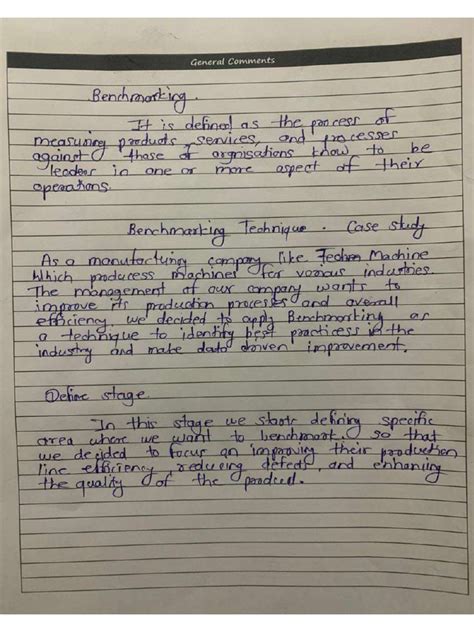 General Comments
Benchmarking.
It is defined as the process of
measuring products, services, and processes
against those of orgnisations know to be
leader in one or more aspect of their
operations.
Benchmarking Technique. Case study
As a manufacturing company like Machine
Which producess machines for various industries.
The management of our company wants to
improve its production processes and overall
efficiency. we decided to apply Benchmarking as
a technique to identify best practicess in the
industry and make data driven improvement.
① Define stage
In this stage we starts defining specific
area where we want to benchmark. so that
we decided to focus on improving their production
line efficiency, reducing defects, and enhancing
the quality of the product.